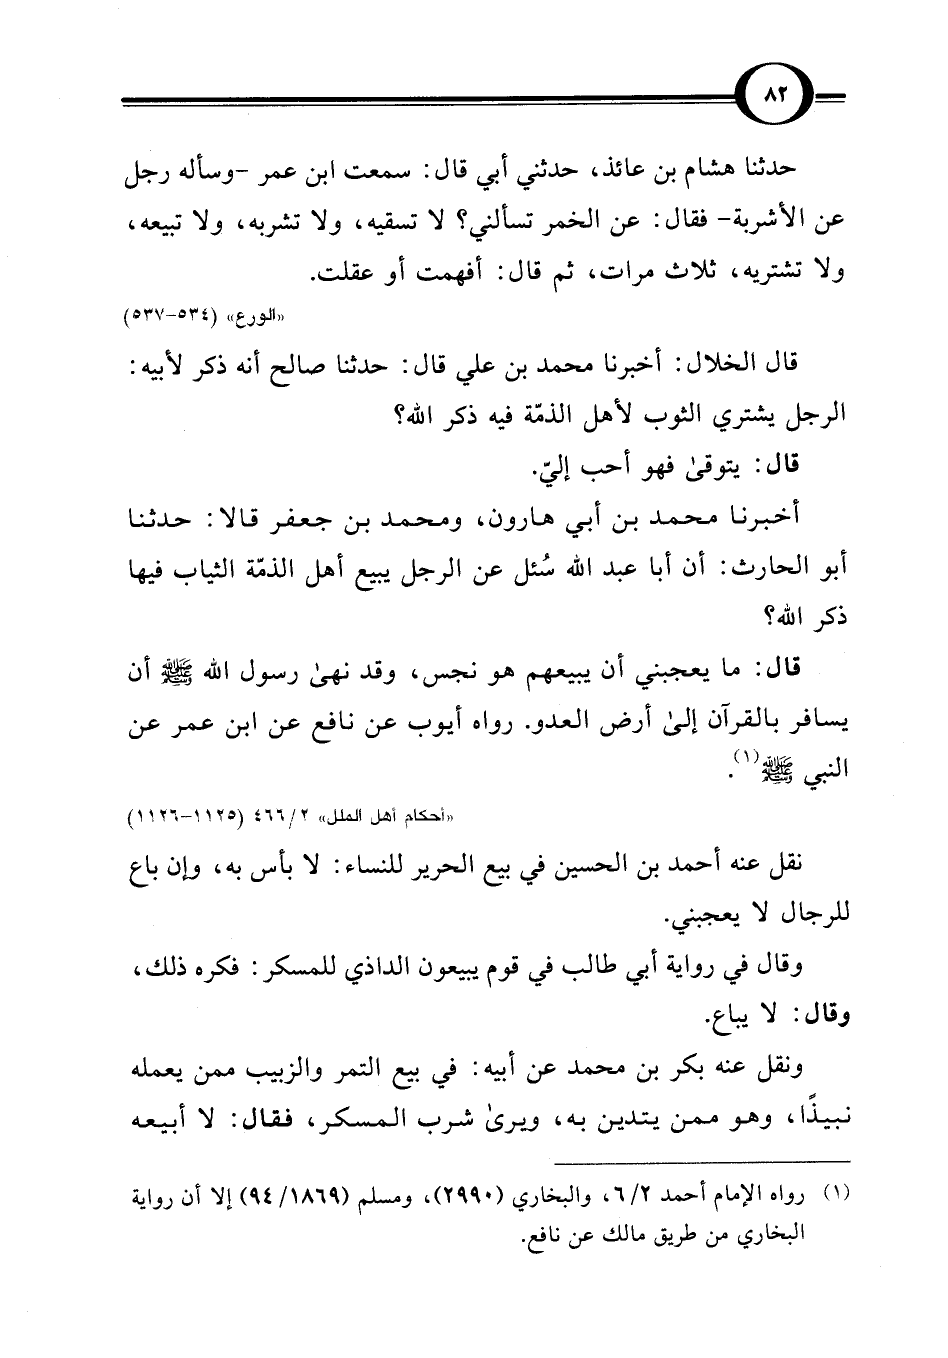 ٨٢
حدثنا هشام بن عائذ، حدثني أبي قال: سمعت ابن عمر -وسأله رجل
عن الأشربة- فقال: عن الخمر تسألني؟ لا تسقيه، ولا تشربه، ولا تبيعه،
ولا تشتريه، ثلاث مرات، ثم قال: أفهمت أو عقلت.
«الورع» (٥٣٤-٥٣٧)
قال الخلال: أخبرنا محمد بن علي قال: حدثنا صالح أنه ذكر لأبيه:
الرجل يشتري الثوب لأهل الذمّة فيه ذكر الله؟
قال: يتوقىٰ فهو أحب إليّ.
أخبرنا محمد بن أبي هارون، ومحمد بن جعفر قالا: حدثنا
أبو الحارث: أن أبا عبد الله سُئل عن الرجل يبيع أهل الذمّة الثياب فيها
ذكر الله؟
قال: ما يعجبني أن يبيعهم هو نجس، وقد نهىٰ رسول الله ﷺ أن
يسافر بالقرآن إلىٰ أرض العدو. رواه أيوب عن نافع عن ابن عمر عن
النبي ﷺ(١).
«أحكام أهل الملل» ٢/ ٤٦٦ (١١٢٥-١١٢٦)
نقل عنه أحمد بن الحسين في بيع الحرير للنساء: لا بأس به، وإن باع
للرجال لا يعجبني.
وقال في رواية أبي طالب في قوم يبيعون الداذي للمسكر: فكره ذلك،
وقال: لا يباع.
ونقل عنه بكر بن محمد عن أبيه: في بيع التمر والزبيب ممن يعمله
نبيذًا، وهو ممن يتدين به، ويرىٰ شرب المسكر، فقال: لا أبيعه
(١) رواه الإمام أحمد ٢/ ٦، والبخاري (٢٩٩٠)، ومسلم (١٨٦٩/ ٩٤) إلا أن رواية
البخاري من طريق مالك عن نافع.